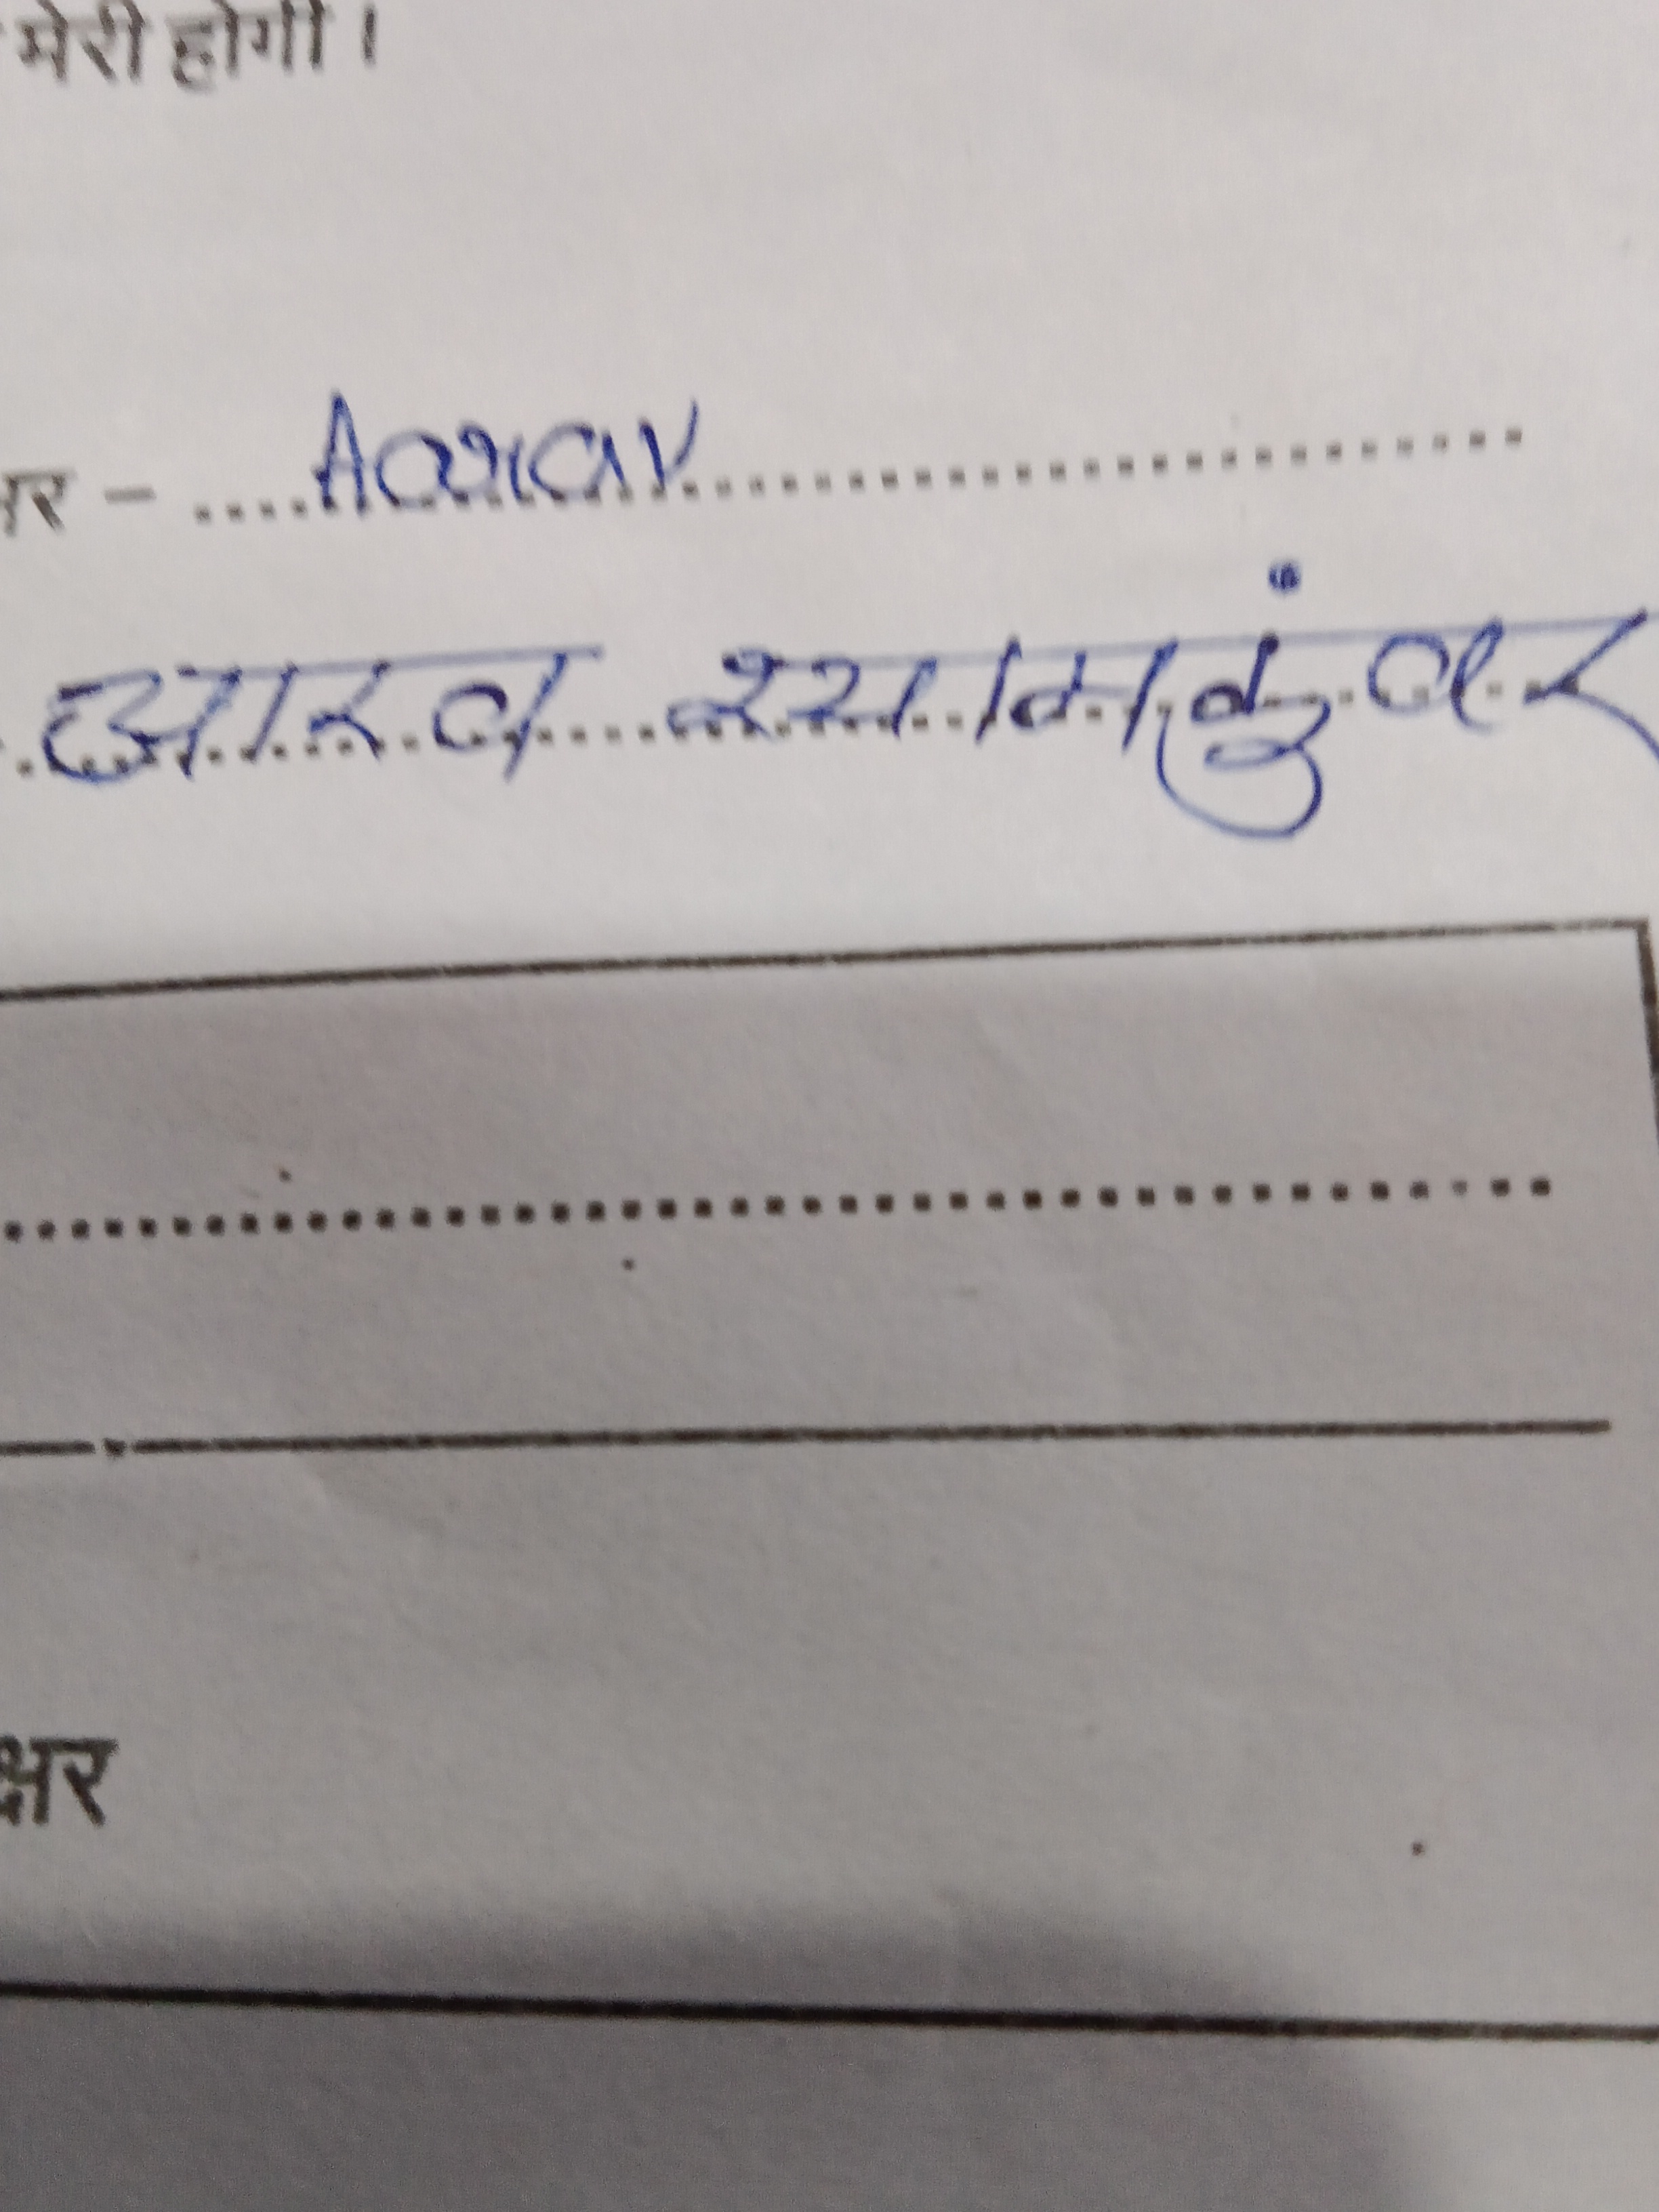 मेरी होगी ।
क्षर - .... Aarav ................
आरव श्यामकुंवर
................
क्षर